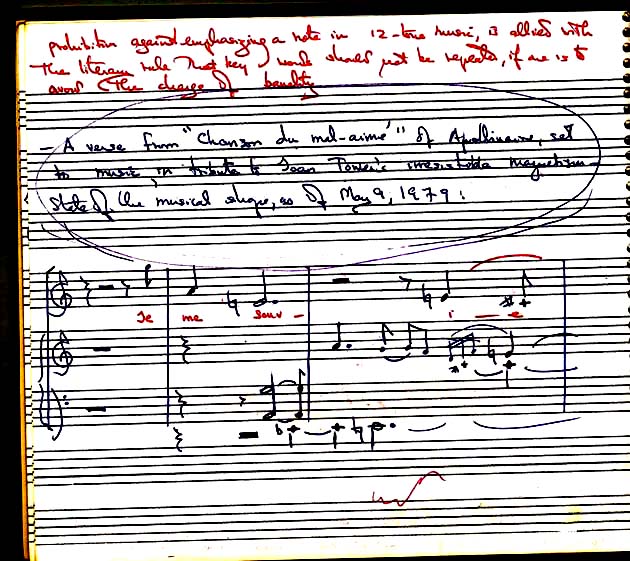 prohibition against emphasizing a note in 12-tone music, is allied with
the literary rule that key words should not be repeated, if one is to
avoid the charge of banality
- A verse from "Chanson du mal-aimé" of Apollinaire, set
to music in tribute to Joan Power's irresistible magnetism -
State of the musical slope, as of May 9, 1979:
Je me souv - i - e